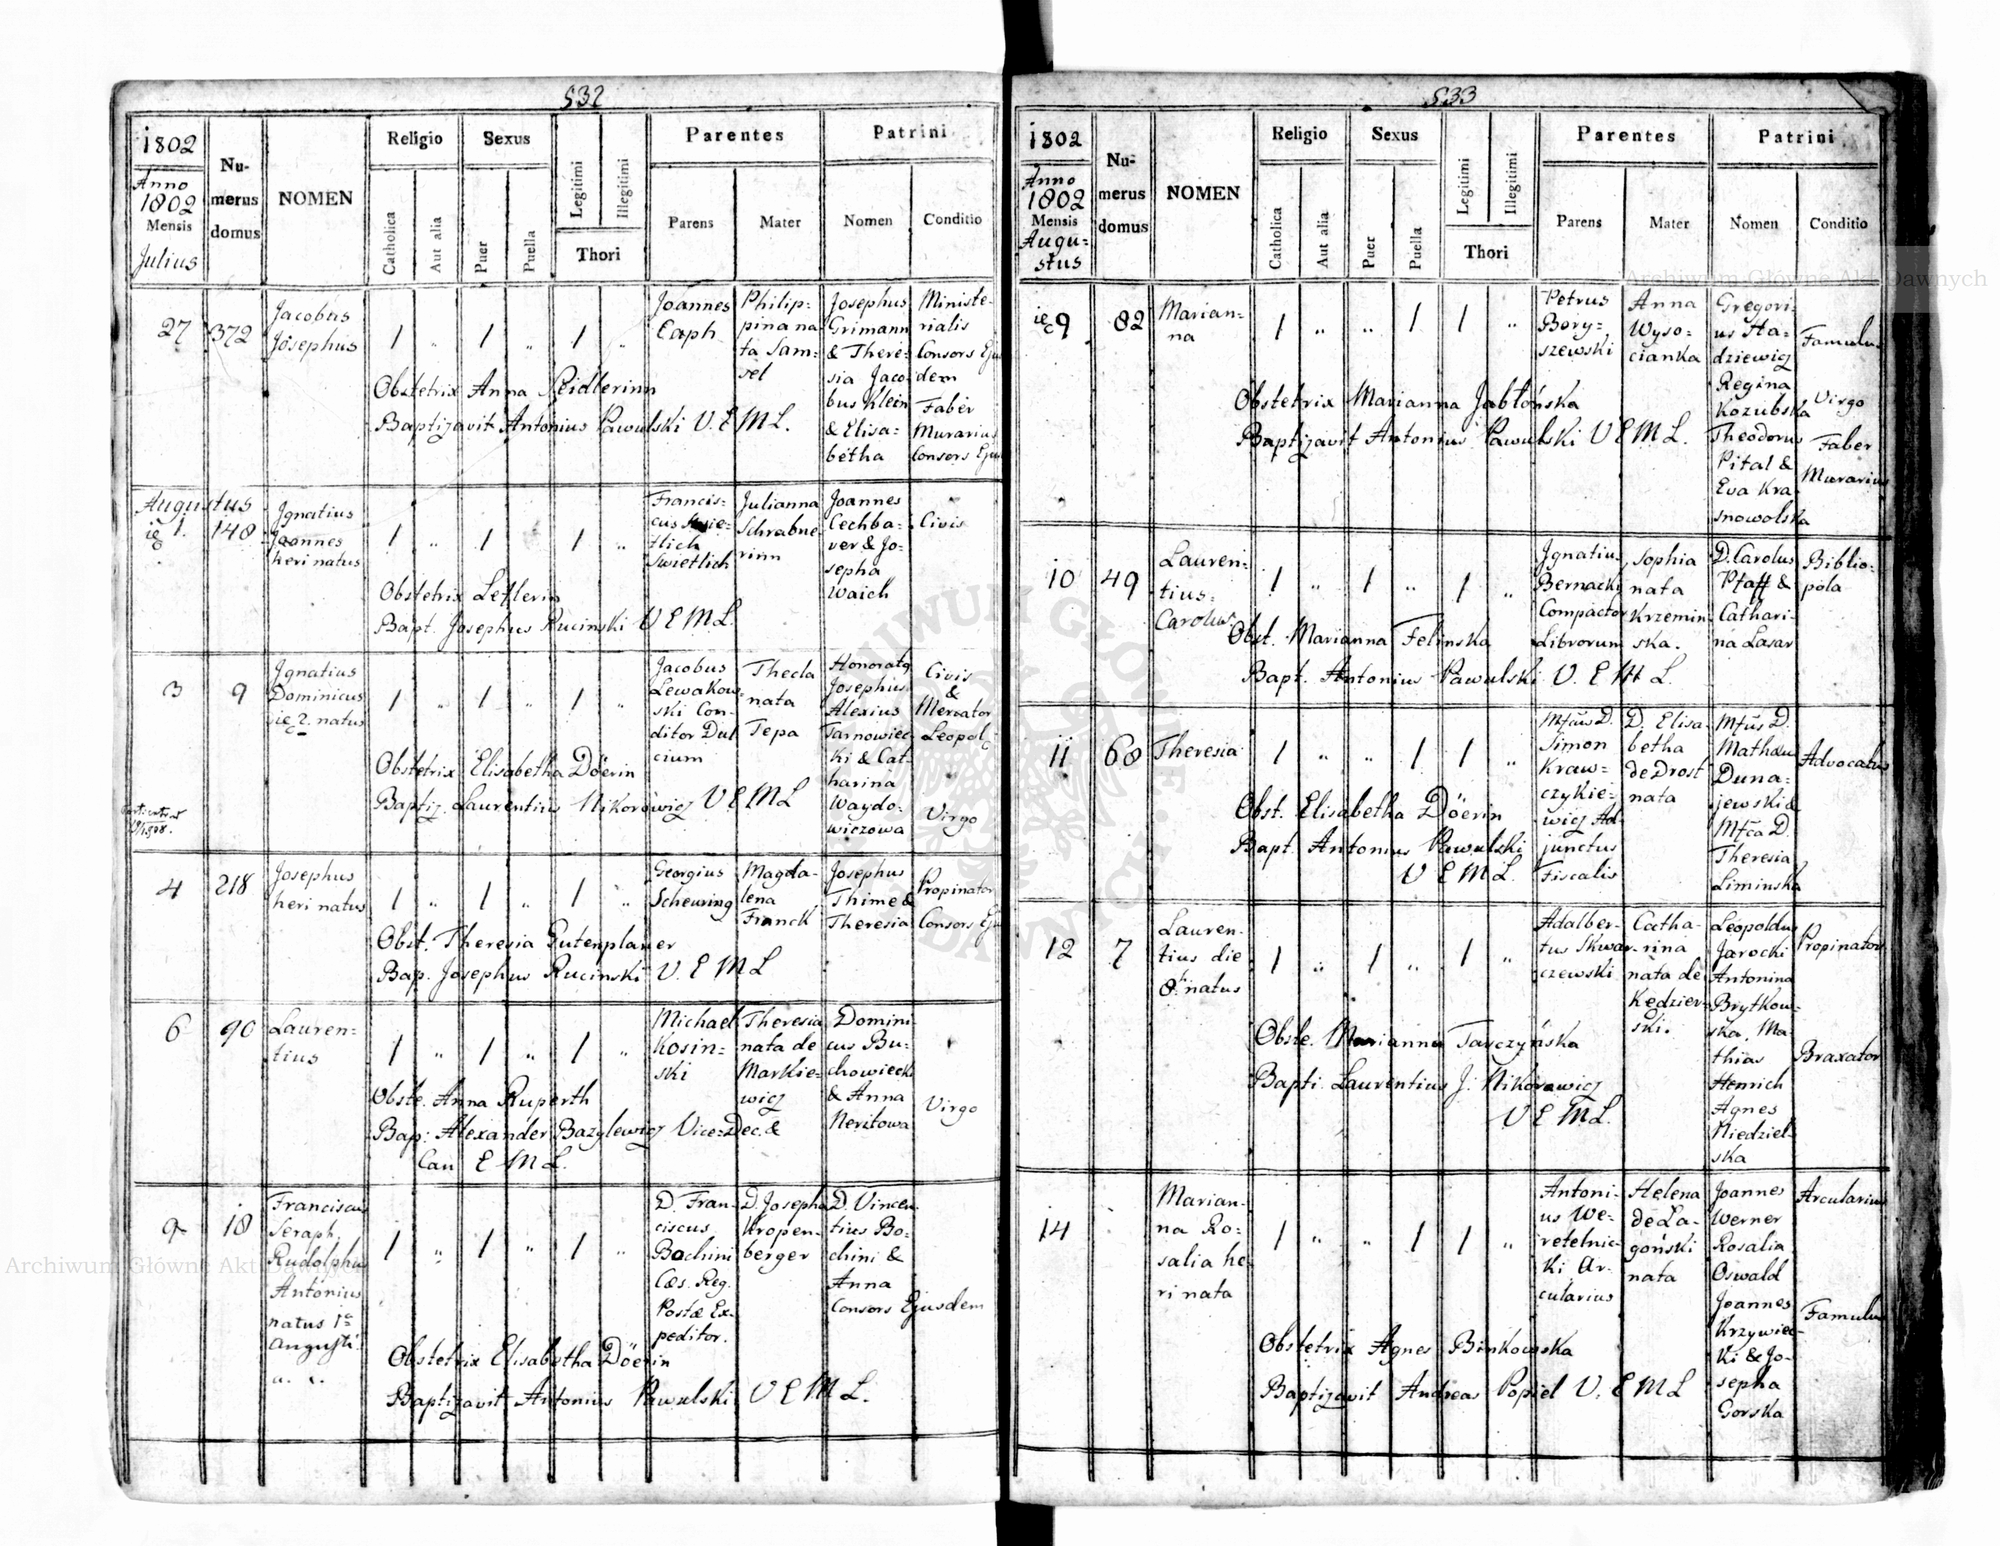 532
1802
Anno
1802
Mensis
Julius
Nu-
merus
domus
NOMEN
Religio
Catholica
Aut alia
Sexus
Puer
Puella
Legitimi
Illegitimi
Thori
Parentes
Parens
Mater
Patrini
Nomen
Conditio
27
372
Jacobus
Josephus
/ „ / „ / „
Joannes
Caph
Philip=
pina na
ta Sam=
sel
Josephus
Grimann
& There=
sia Jaco
bus Klein
& Elisa=
betha
Ministe-
rialis
Consors Eju
dem
Faber
Murarius
Consors Eju
Obstetrix Anna Seidlerinn
Baptizavit Antonius Pawulski V. E M L.
Augustus
ie 1.
148
Ignatius
Joannes
heri natus
/ „ / / „
Francis=
cus
tlich
Swietlich
Julianna
Schrabne
rinn
Joannes
Cechba=
ver & Jo=
sepha
Waich
Civis
Obstetrix Leflerin
Bapt. Josephus Rucinski V E M L.
3
9
Ignatius
Dominicus
ie 2. natus
/ „ / „ / „
Jacobus
Lewakow
ski Con=
ditor Dul
cium
Thecla
nata
Tepa
Honoratq
Josephus
Alexius
Tarnowiec
ki & Cat=
harina
Waydo=
wiczowa
Civis
&
Mercator
Leopol:
Virgo
Obstetrix Elisabetha Döerin
Baptiz. Laurentius Nikorowicz V E M L
4
218
Josephus
heri natus
/ „ / „ / „
Georgius
Scheuring
Magda-
lena
Franck
Josephus
Thime &
Theresia
Propinator
Consors Eju
Obst. Theresia Gutenplaner
Bap. Josephus Rucinski V. E M L
6
90
Lauren=
tius
/ „ / „ / „
Michael
Kosin=
ski
Theresia
nata de
Markie=
wicz
Domini
cus Bu=
chowiecki
& Anna
Neritowa
Virgo
Obste. Anna Ruperth
Bap: Alexander Bazylewicz Vice=Dec. &
Can E M L.
9
18
Franciscus
Seraph.
Rudolphus
Antonius
natus 1a
Augusti
/ „ / „ / „
D. Fran=
ciscus
Bochini
Cæs. Reg.
Postæ Ex=
peditor.
D. Josepha
Kropen=
berger
D. Vincen
tius Bo=
chini &
Anna
Consors Ejusdem
Obstetrix Elisabetha Döerin
Baptizavit Antonius Pawulski V E M L.
533
1802
Anno
1802
Mensis
Augu=
stus
Nu-
merus
domus
NOMEN
Religio
Catholica
Aut alia
Sexus
Puer
Puella
Legitimi
Illegitimi
Thori
Parentes
Parens
Mater
Patrini
Nomen
Conditio
ie 9
82
Marian=
na
/ „ „ / / „
Petrus
Bory=
szewski
Anna
Wyso=
cianka
Gregori=
us Sta=
dziewicz
Regina
Kozubska
Theodorus
Pital &
Eva Kra
snowolska
Famulus
Virgo
Faber
Murarius
Obstetrix Marianna Jabłońska
Baptizavit Antonius Pawulski V E M L.
10
49
Lauren=
tius=
Carolus
/ „ / „ / „
Ignatius
Bernacki
Compactor
Librorum
Sophia
nata
Krzemin
ska.
D. Carolus
Pfaff &
Cathari=
na Lasar
Biblio=
pola
Obst. Marianna Felinska
Bapt. Antonius Pawulski V. E M L.
11
68
Theresia
/ „ „ / / „
Mfcus D.
Simon
Kraw=
czykie=
wicz Ad=
junctus
Fiscalis
D. Elisa
betha
de Drost
nata
Mfcus D.
Mathæus
Duna=
jewski &
Mfca D.
Theresia
Liminska
Advocatus
Obst. Elisabetha Döerin
Bapt. Antonius Pawulski
V E M L.
12
7
Lauren-
tius die
8. natus
/ „ / „ / „
Adalber-
tus Skwar
czewski
Catha-
rina
nata de
Kędzier=
ski.
Leopoldus
Jarocki
Antonina
Brytkow=
ska, Ma=
thias
Henrich
Agnes
Niedziel=
ska
Propinator
Braxator
Obste. Marianna Tarczyńska
Bapti. Laurentius J. Nikorowicz
V E M L.
14
Marian=
na Ro=
salia he=
ri nata
/ „ „ / / „
Antoni=
us We=
retelnic=
ki Ar=
cularius
Helena
de La=
goński
nata
Joannes
Werner
Rosalia
Oswald
Joannes
Krzywiec=
ki & Jo=
sepha
Gorska
Arcularius
Famulus
Obstetrix Agnes Binkowska
Baptizavit Andreas Popiel V. E M L
Archiwum Główne Akt Dawnych
Archiwum Główne Akt Dawnych
ARCHIWUM GŁÓWNE AKT DAWNYCH